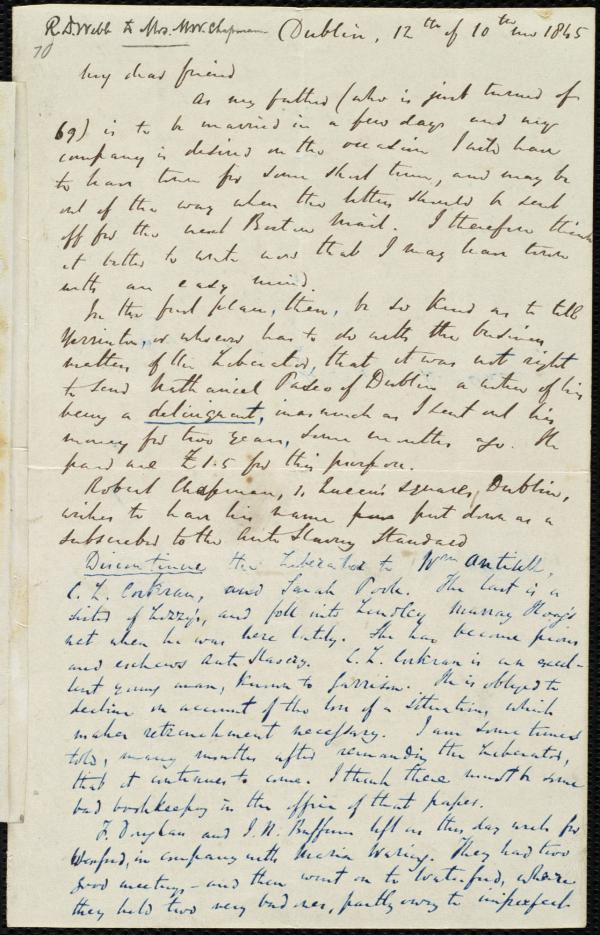 R.D. Webb to Mrs. M.W. Chapman Dublin, 12th of 10th mo 1845
70
My dear friend
As my father (who is just turned of
69) is to be married in a few days and my
company is desired on the occasion I will have
to leave town for some short time, and may be
out of the way when the letters should be sent
off for the next Boston Mail. I therefore think
it better to write now that I may leave town
with an easy mind.
In the first place, then, be so kind as to tell
Yerrinton, or whoever has to do with the business
matters of the Liberator, that it was not right
to send Nathaniel Pases of Dublin a notice of his
being a delinquent, inasmuch as I sent out his
money for two years, some months ago. He
paid me £1.5 for this purpose.
Robert Chapman, 1, Queen's square, Dublin,
wishes to have his name put down as a
subscriber to the Anti Slavery Standard
Discontinue the Liberator to Wm Antisell,
C. L. Corkran, and Sarah Poole. The last is a
sister of Lizzy's, and fell into Lindley Murray Hoag's
net when he was here lately. She has become pious
and eschews Anti Slavery. C. L. Corkran is an excel-
lent young man, known to Garrison. He is obliged to
decline on account of the loss of a situation, which
makes retrenchment necessary. I am sometimes
told, many months after remanding the Liberator,
that it continues to come. I think there must be some
bad bookkeeping in the office of that paper.
F. Douglass and J. N. Buffum left us this day week for
Wexford, in company with Maria Waring. They had two
good meetings - and then went on to Waterford, where
they held two very bad ones, partly owing to imperfect